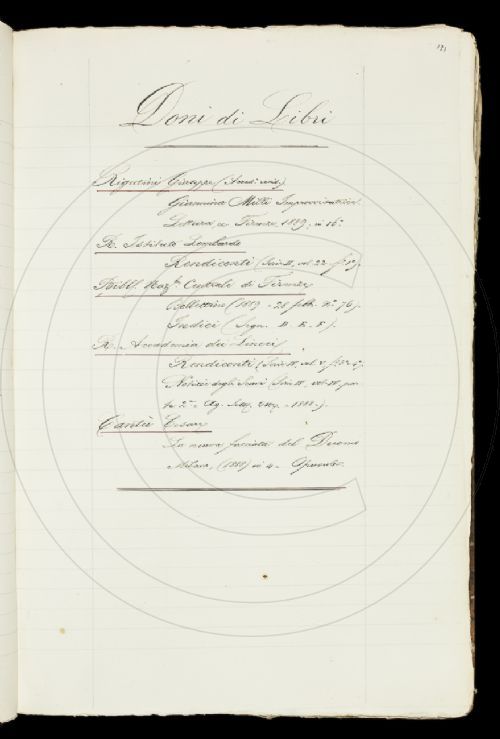 121
Doni di Libri
Rigutini Giuseppe (Accad. resid.)
Giannina Milli Improvvisatrice.
Lettura, a Firenze, 1889, in 16.°
R. Istituto Lombardo
Rendiconti (Serie II, vol. 22
Bibl. Naz.le Centrale di Firenze
Bollettino (1889 - 28 febb. N.° 76).
Indici (Segn. D. E. F.).
R. Accademia dei Lincei
Rendiconti (Serie IV, vol. V,
Notizie degli Scavi (Serie IV, vol. IV, par-
te 2.a - 1888.).
Cantù Cesare
La nuova facciata del Duomo
Milano, (1888) in 4.° Opuscolo.